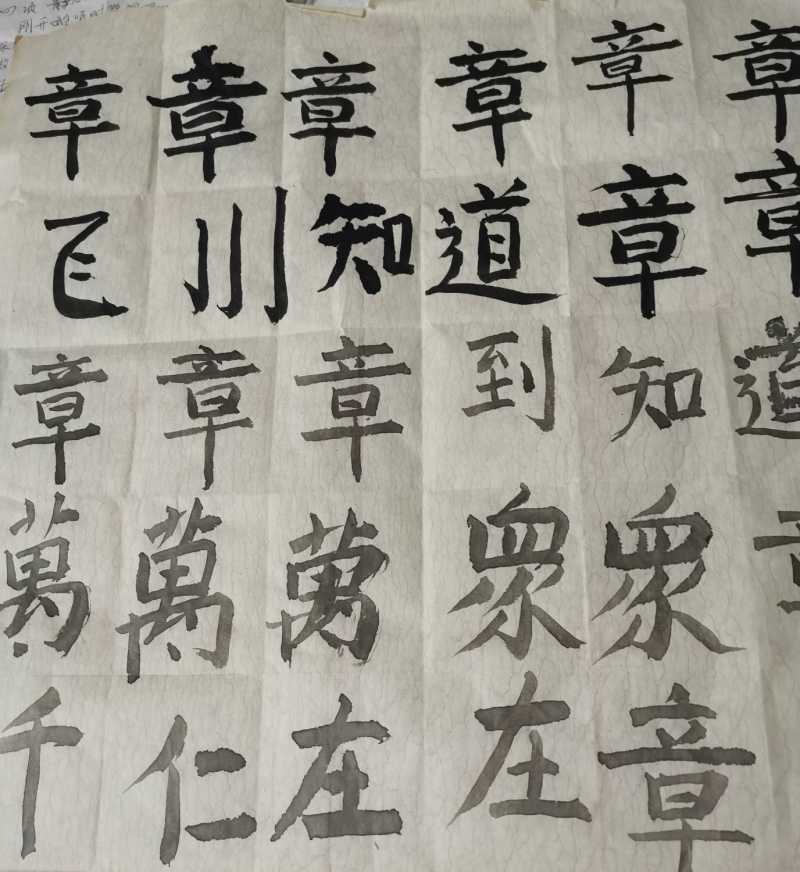 章章章章章章
川知道章章
章章章到知道
萬萬萬衆衆
千仁在在章